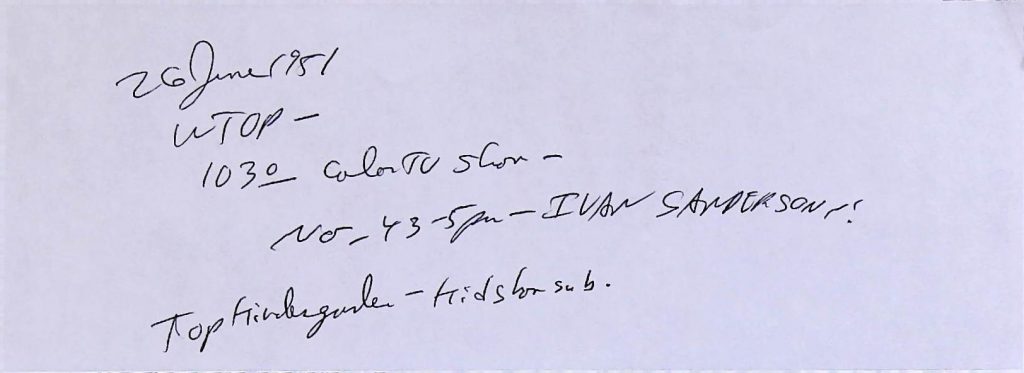 26 June 1951
WTOP –
1030 Color TV Show –
No – 43-5pm – IVAN SANDERSON,!
Top Kindergarden – Kid show sub.